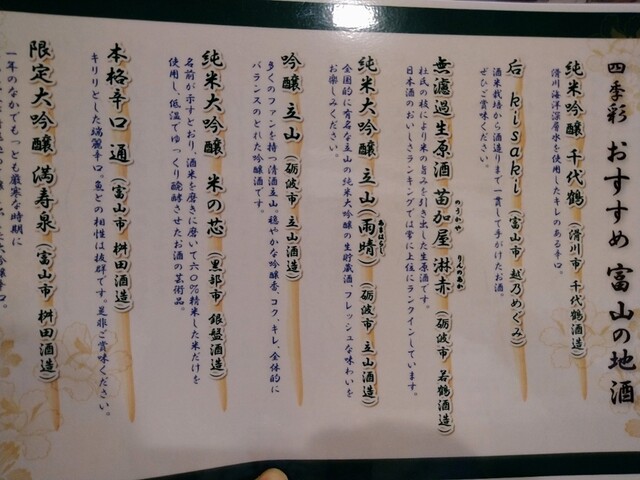 四季彩 おすすめ 富山の地酒
純米吟醸 千代鶴 (滑川市 千代鶴酒造)
滑川海洋深層水を使用したキレのある辛口。
后 kisaki (富山市 越乃めぐみ)
酒米栽培から酒造りまで一貫して手がけたお酒。
ぜひご賞味ください。
無濾過生原酒 苗加屋 琳赤 (砺波市 若鶴酒造)
のうかや りんのあか
杜氏の技により米の旨みを引き出した生原酒です。
日本酒のおいしさランキングでは常に上位にランクインしています。
純米大吟醸 立山(雨晴) (砺波市 立山酒造)
あまはらし
全国的に有名な立山の純米大吟醸の生貯蔵酒、フレッシュな味わいを
お楽しみください。
吟醸 立山 (砺波市 立山酒造)
多くのファンを持つ清酒立山 穏やかな吟醸香、コク、キレ、全体的に
バランスのとれた吟醸酒です。
純米大吟醸 米の芯 (黒部市 銀盤酒造)
名前が示すとおり、酒米を磨きに磨いて六〇%精米した米だけを
使用し、低温でゆっくり醗酵させたお酒の芸術品。
本格辛口 通 (富山市 桝田酒造)
キリリとした端麗辛口。魚との相性は抜群です。是非ご賞味ください。
限定大吟醸 満寿泉 (富山市 桝田酒造)
一年のなかでもっとも厳寒な時期に